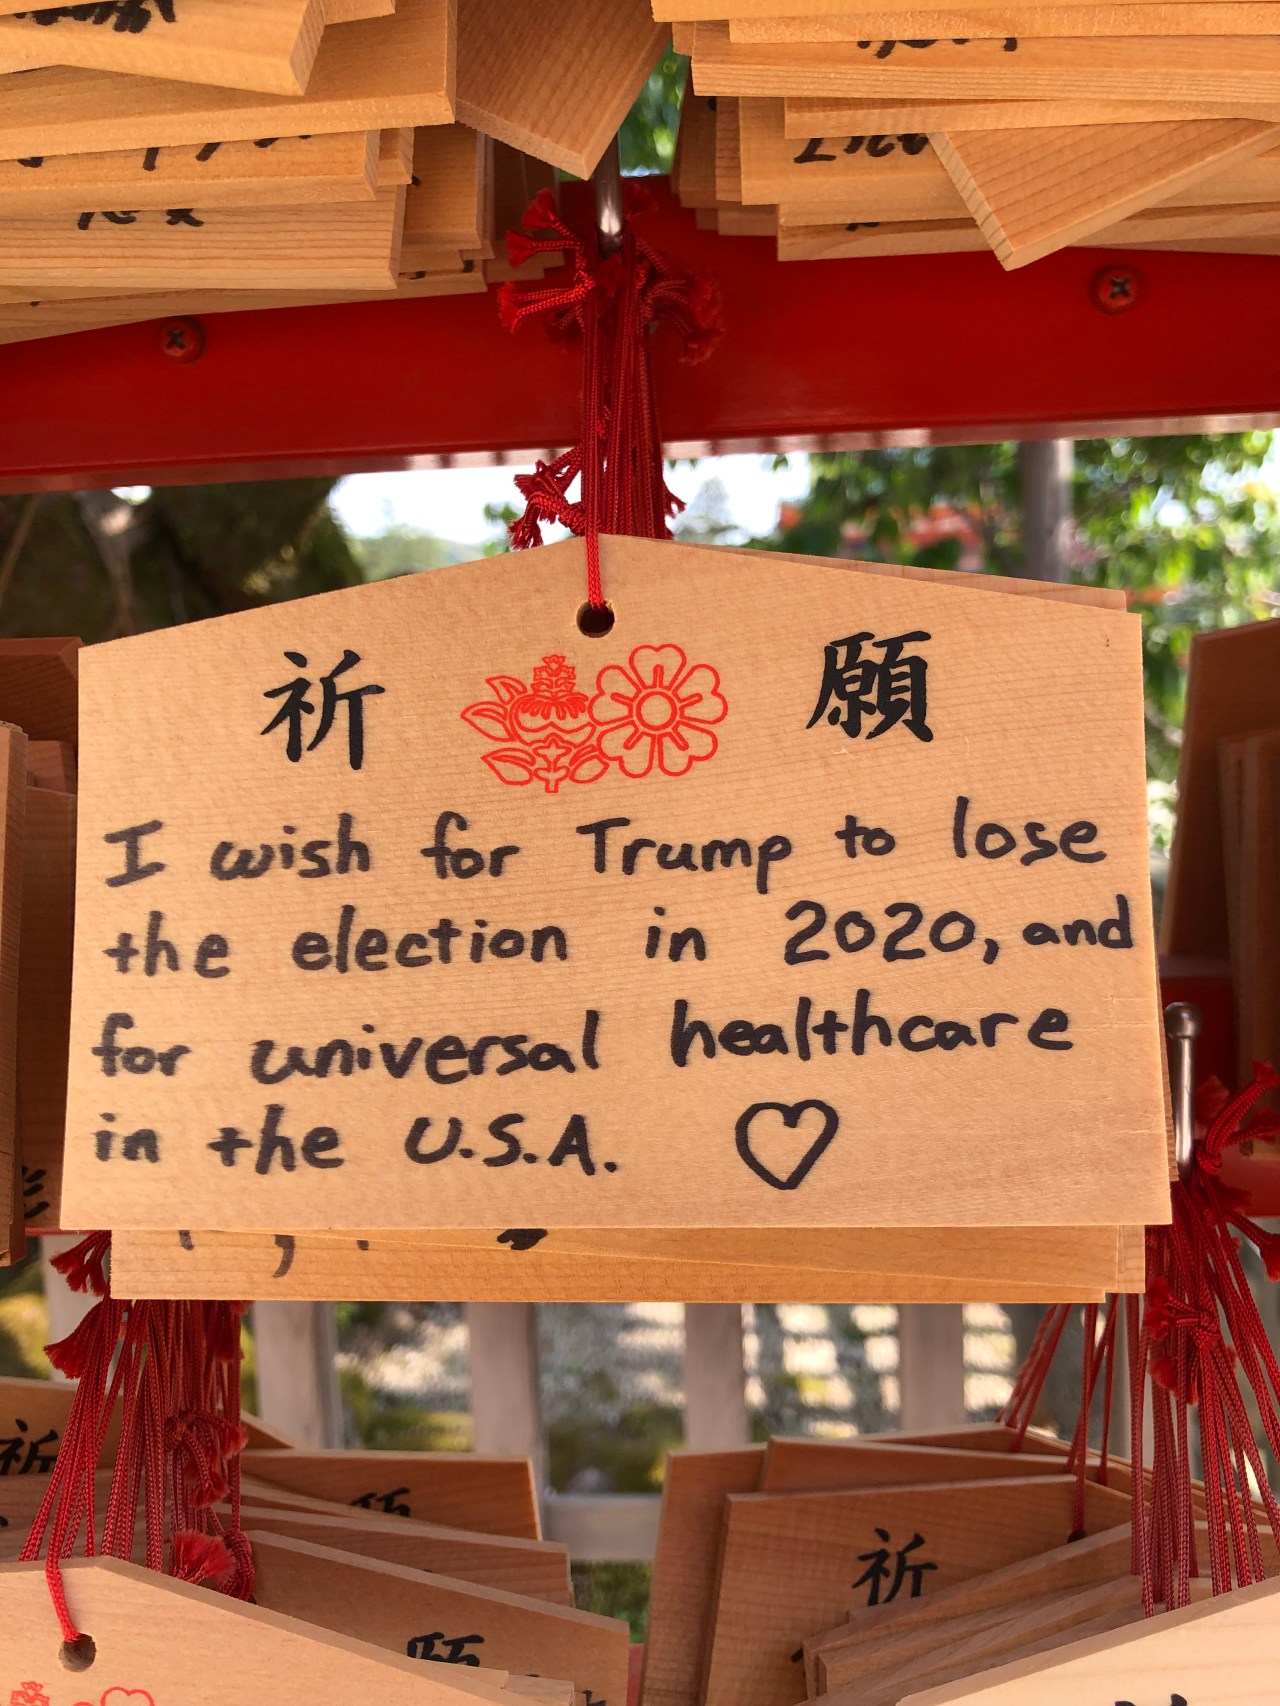 祈 願
I wish for Trump to lose
the election in 2020, and
for universal healthcare
in the U.S.A. ♡
祈
願
祈
願